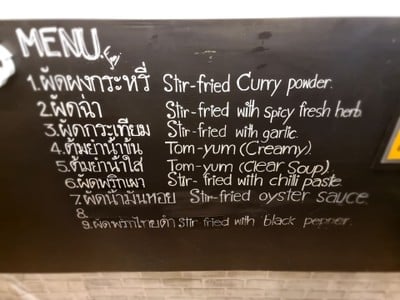 MENU.
1.ผัดผงกะหรี่ Stir-fried Curry powder.
2.ผัดฉ่า Stir-fried with spicy fresh herb
3.ผัดกระเทียม Stir-fried with garlic.
4.ต้มยำน้ำข้น Tom-yum (Creamy)
5.ต้มยำน้ำใส Tom-yum (Clear Soup)
6.ผัดพริกเผา Stir-fried with chilli paste
7.ผัดน้ำมันหอย Stir-fried oyster sauce.
8.
9.ผัดพริกไทยดำ Stir fried with black pepper.